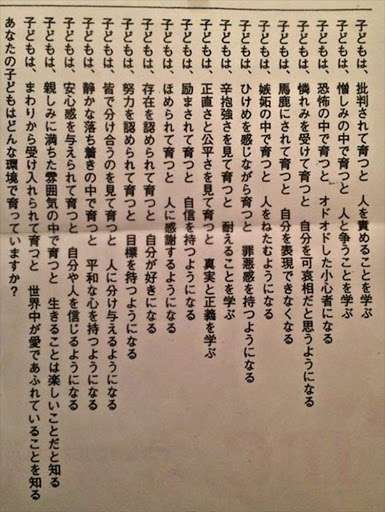 子どもは、批判されて育つと　人を責めることを学ぶ
子どもは、憎しみの中で育つと　人と争うことを学ぶ
子どもは、恐怖の中で育つと　オドオドした小心者になる
子どもは、憐れみを受けて育つと　自分を可哀相だと思うようになる
子どもは、馬鹿にされて育つと　自分を表現できなくなる
子どもは、嫉妬の中で育つと　人をねたむようになる
子どもは、ひけめを感じながら育つと　罪悪感を持つようになる
子どもは、辛抱強さを見て育つと　耐えることを学ぶ
子どもは、正直さと公平さを見て育つと　真実と正義を学ぶ
子どもは、励まされて育つと　自信を持つようになる
子どもは、ほめられて育つと　人に感謝するようになる
子どもは、存在を認められて育つと　自分が好きになる
子どもは、努力を認められて育つと　目標を持つようになる
子どもは、皆で分け合うのを見て育つと　人に分け与えるようになる
子どもは、静かな落ち着きの中で育つと　平和な心を持つようになる
子どもは、安心感を与えられて育つと　自分や人を信じるようになる
子どもは、親しみに満ちた雰囲気の中で育つと　生きることは楽しいことだと知る
子どもは、まわりから受け入れられて育つと　世界中が愛であふれていることを知る
あなたの子どもはどんな環境で育っていますか？